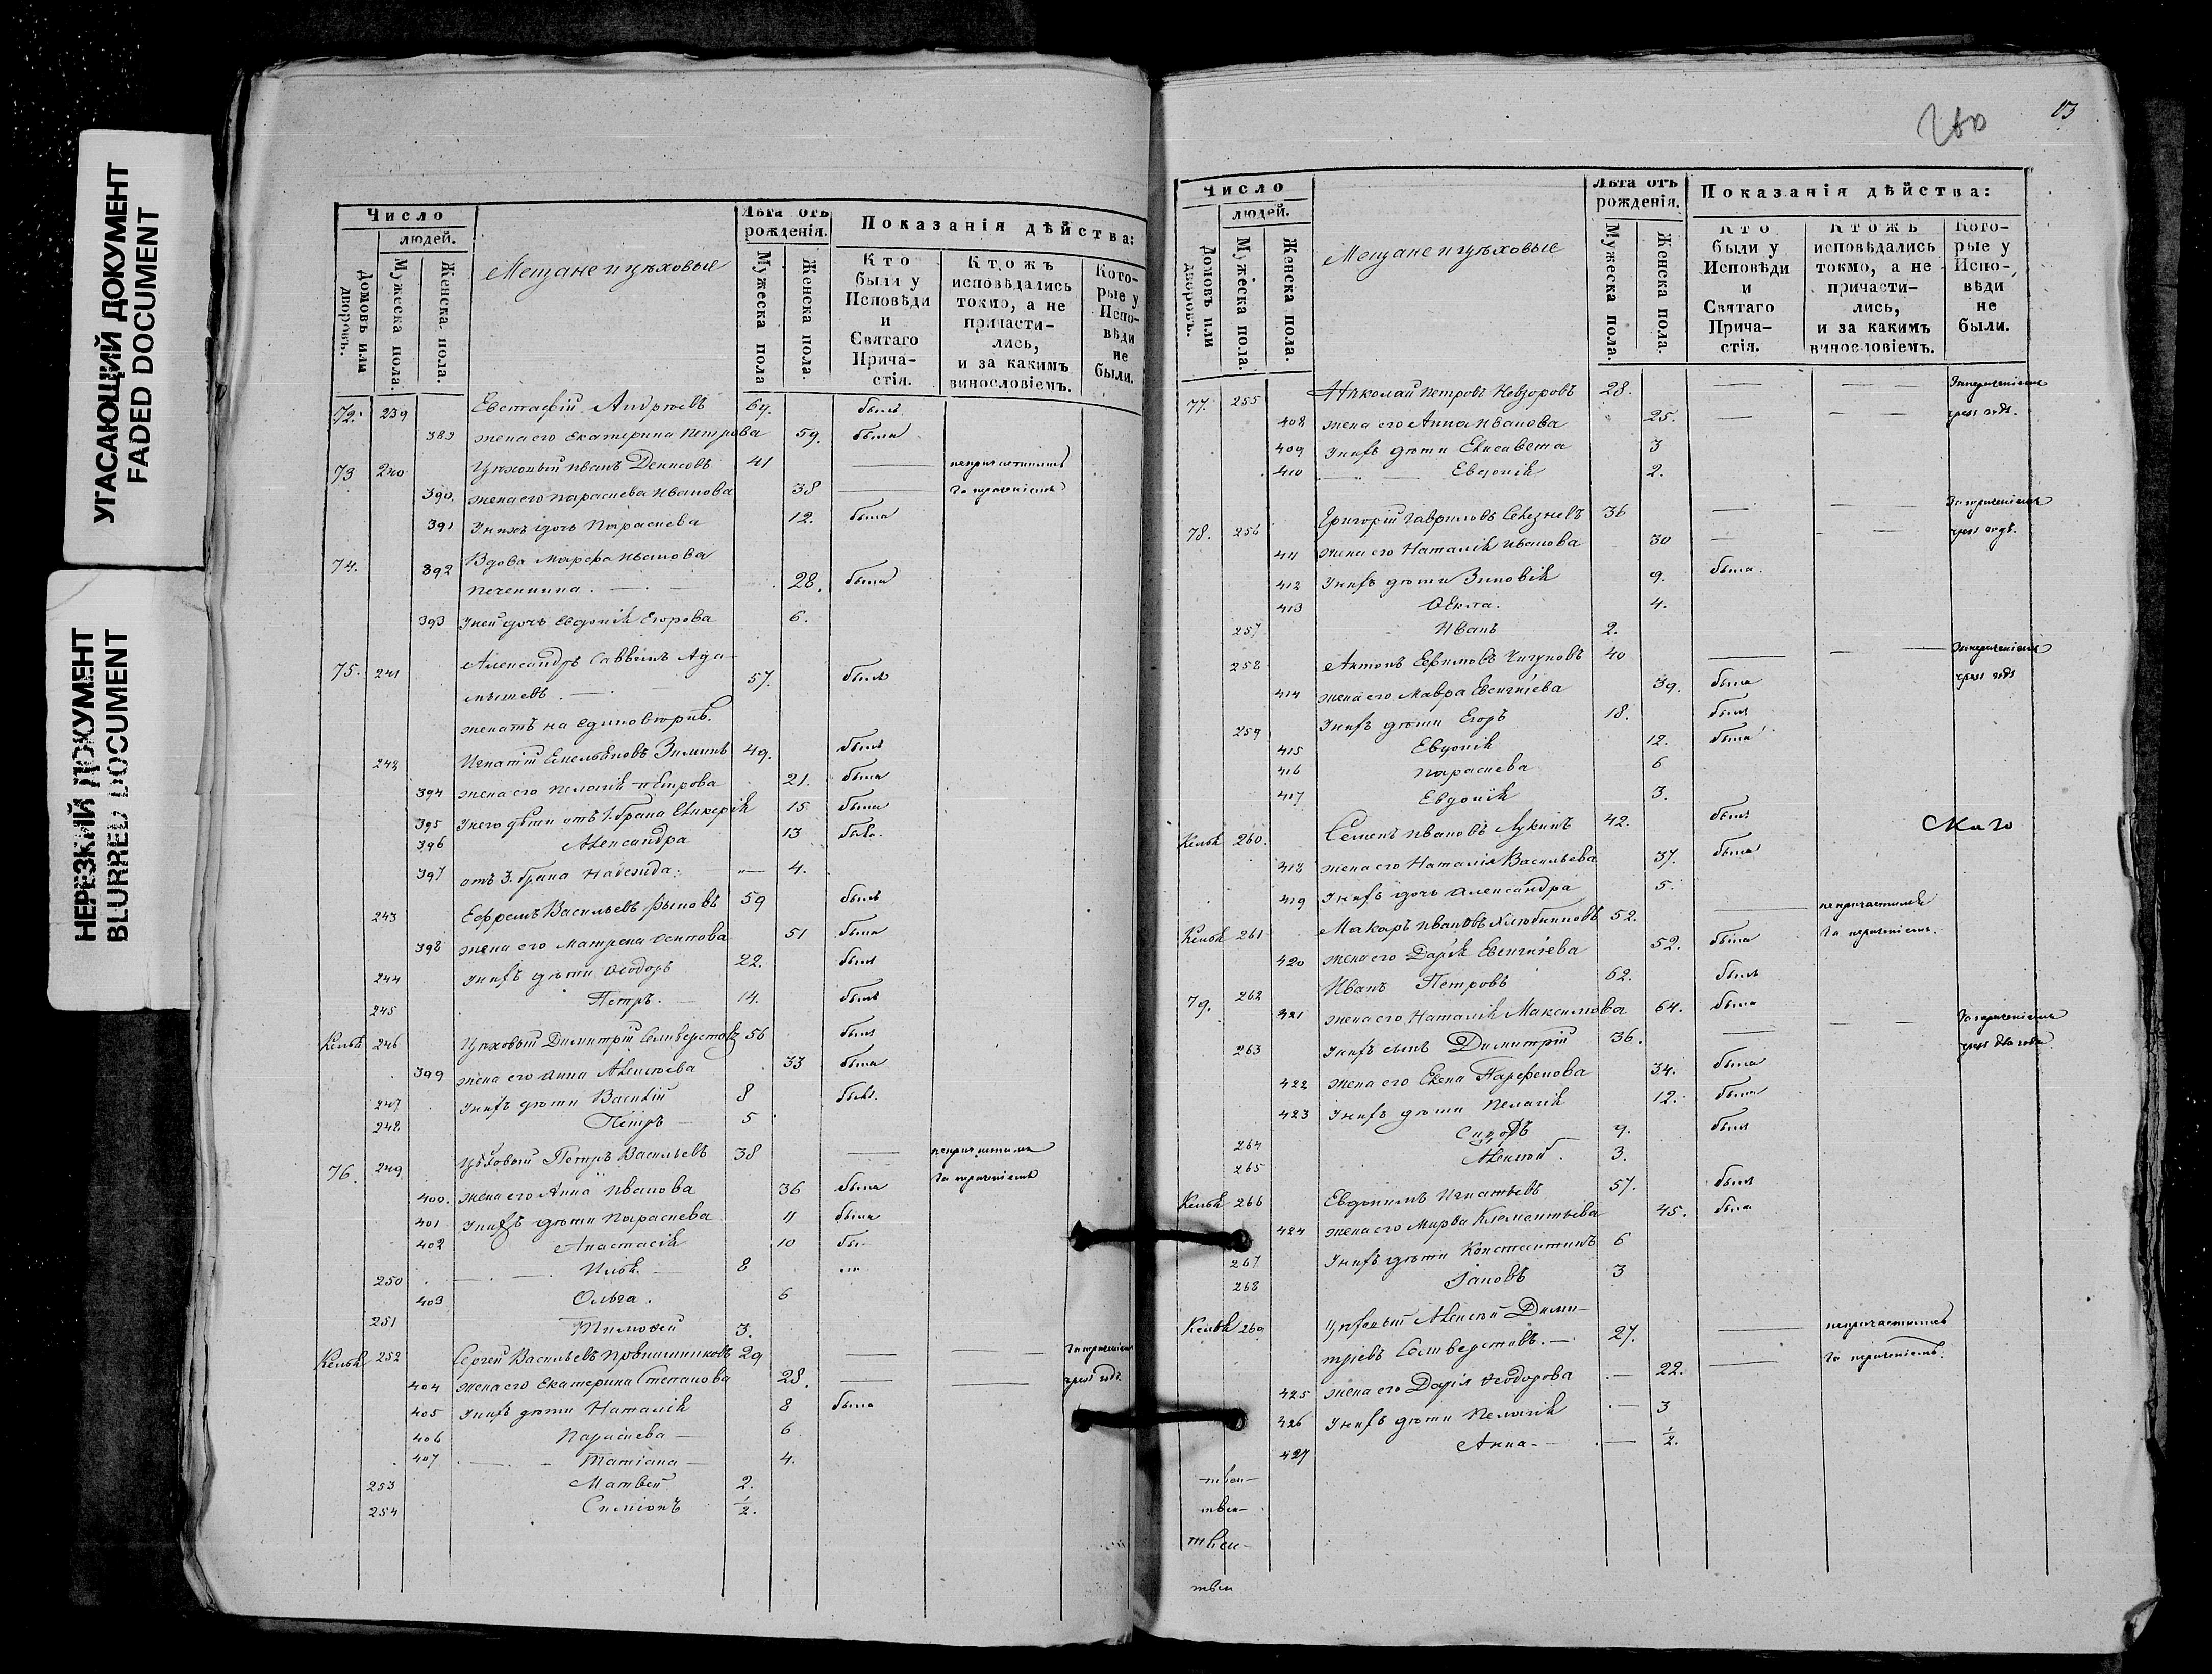 УГАСАЮЩИЙ ДОКУМЕНТ
FADED DOCUMENT
НЕРЕЗКИЙ ДОКУМЕНТ
BLURRED DOCUMENT
Число
людей.
Домовъ или дворовъ.
Мужеска пола.
Женска пола.
Мещане и цѣховые
Лѣта отъ рожденія.
Мужеска пола
Женска пола.
Показанія дѣйства:
Кто были у Исповѣди и Святаго Прича-стія.
Ктожъ исповѣдались токмо, а не причасти-лись, и за какимъ винословіемъ.
Кото-рые у Испо-вѣди не были.
72. 239 Евстафій Андреевъ 64. былъ
389 жена его Екатерина Петрова 59. была
73 240 Цѣховый Иванъ Денисовъ 41 —
390. жена его Параскева Иванова 38 — за нерачениемъ
391 У нихъ дочь Параскева 12. была
74. 392 Вдова Марфа Иванова
28. была
393 У ней дочь Евдокія Егорова 6.
75. 241 Александръ Саввинъ Ада-
мышевъ. — 57. былъ
женатъ на единовѣрнѣ.
242 Игнатій Емельяновъ Зиминъ 49. былъ
394 жена его Пелагія Петрова 21. была
395 У него дѣти отъ 1. брака Гликерія 15 была
396 Александра 13 была
397 отъ 3. брака Надежда. — 4.
243 Ефремъ Васильевъ Быковъ 59 былъ
398 жена его Матрена Осипова 51 была
244 У нихъ дѣти Ѳеодоръ 22. былъ
245 Петръ. — 14. былъ
Келья 246 Цѣховый Димитрій Селиверстовъ 56 былъ
399 жена его Анна Алексѣева 33 была
247 У нихъ дѣти Василій 8 былъ.
248 Петръ — 5
76. 249 Цѣховый Петръ Васильевъ 38 —
400. жена его Анна Иванова 36 была за нерачениемъ
401 У нихъ дѣти Параскева 11 была
402 Анастасія 10 бы.
250 Илья. — 8
403 Ольга. 6
251 Тимоѳей 3.
Келья 252 Сергей Васильевъ 29 — —
404 жена его Екатерина Степанова 28. — —
405 У нихъ дѣти Наталія 8 была
406 Параскева — 6
407 Татіана — 4.
253 Матвей 2.
254 Симіонъ ½.
Число
людей.
Домовъ или дворовъ.
Мужеска пола.
Женска пола.
Мещане и цѣховые
Лѣта отъ рожденія.
Мужеска пола.
Женска пола.
Показанія дѣйства:
Кто были у Исповѣди и Святаго Прича-стія.
Ктожъ исповѣдались токмо, а не причасти-лись, и за какимъ винословіемъ.
Кото-рые у Испо-вѣди не были.
77. 255 Николай Петровъ Невзоровъ 28. — — За нерачениемъ
408 жена его Анна Иванова 25. — —
409 У нихъ дѣти Елисавета 3
410 Евдокія 2.
78. 256 Григорій Гавриловъ Селезневъ 36 — — За нерачениемъ
411 жена его Наталія Иванова 30 — —
412 У нихъ дѣти Зиновія 9. была.
413 Ѳекла. 4.
257 Иванъ 2.
258 Антонъ Ефимовъ Чигуновъ 40 — — За нерачениемъ
414 жена его Мавра Евсигнѣева 39. была
259 У нихъ дѣти Егоръ 18. былъ
415 Евдокія 12. была
416 Параскева 6
417 Евдокія 3.
Келья 260. Семенъ Ивановъ Лукинъ 42. былъ
418 жена его Наталія Васильева 37. была
419 У нихъ дочь Александра 5.
Келья 261 Макаръ Ивановъ 52. —
420 жена его Дарія Евсигнѣева 52. была за нерачениемъ.
79. 262 Иванъ Петровъ 62. былъ
421 жена его Наталія Максимова 64. была
263 У нихъ сынъ Димитрій 36. — — За нерачениемъ
422 жена его Елена Парфенова 34. была
423 У нихъ дѣти Пелагія 12. была
264 Сидоръ 9. былъ
265 Алексѣй. 3.
Келья 266 Евдокимъ Игнатьевъ 57. былъ
424 жена его Марѳа Клементьева 45. была
267 У нихъ дѣти Константинъ 6
268 Іаковъ 3
Келья 269 Цѣховый Алексѣй Дими-
тріевъ Селиверстовъ. — 27. —
425 жена его Дарія Ѳеодорова — 22. — за нерачениемъ.
426 У нихъ дѣти Пелагія — 3
427 Анна — ½.